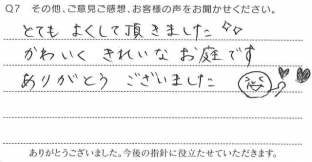 Q7 その他、ご意見ご感想、お客様の声をお聞かせください。
とても よくして頂きました
かわいく きれいな お庭です
ありがとう ございました
ありがとうございました。今後の指針に役立たせていただきます。